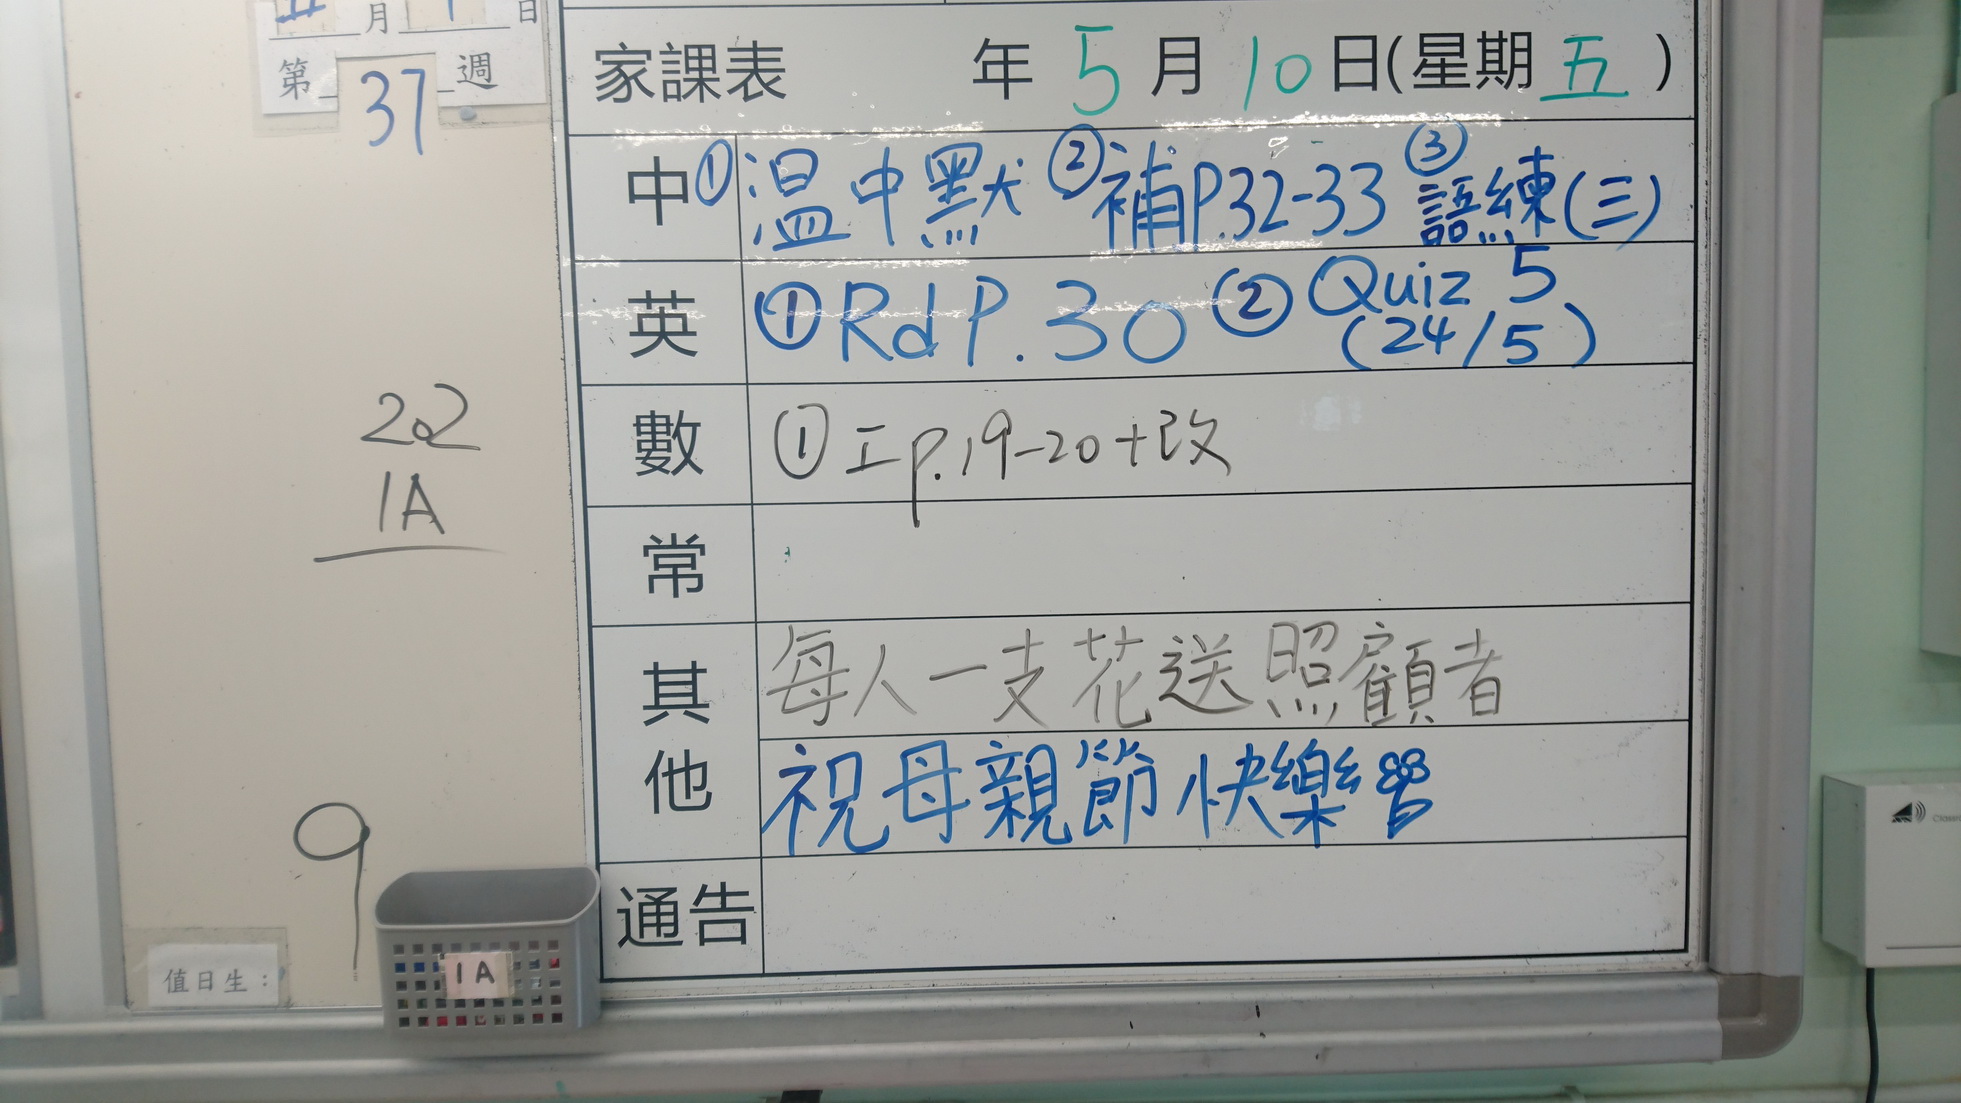 月 日
第 37 週
22
1A
9
值日生：
1A
家課表 年 5 月 10 日(星期 五 )
中 ①溫中默 ②補P.32-33 ③語練(三)
英 ①Rd P.30 ②Quiz 5
(24/5)
數 ①工p.19-20+改
常
其他 每人一支花送照顧者
祝母親節快樂
通告